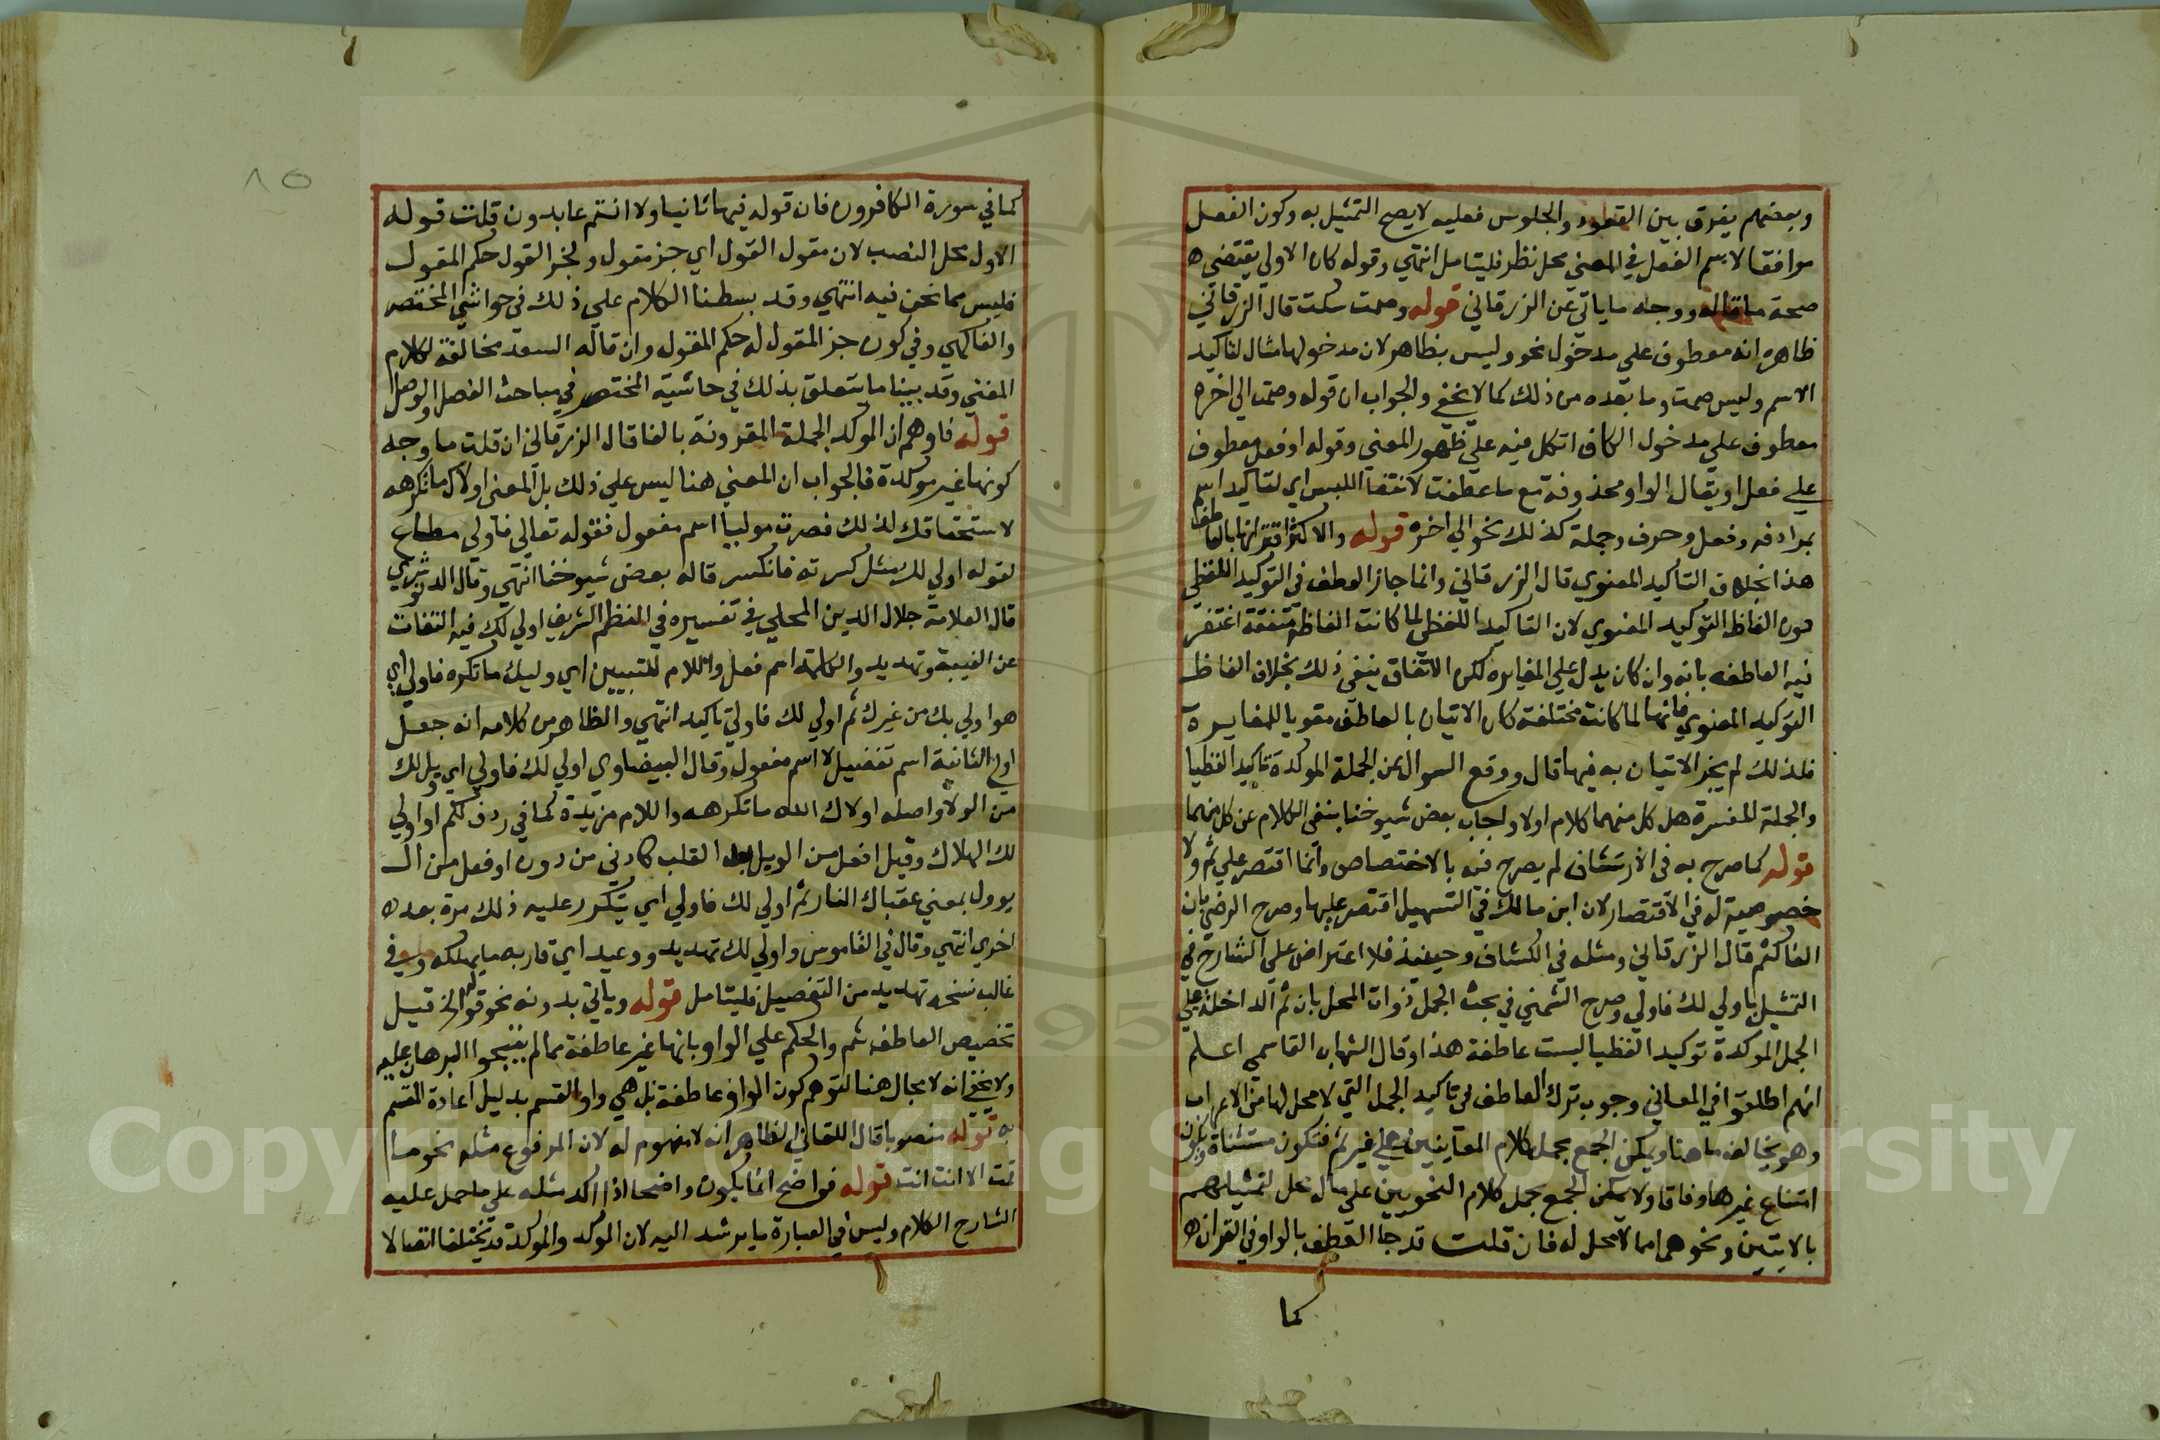 وبعضهم يفرق بين القعود والجلوس فعليه لا يصح التمثيل به وكون الفعل
موافقا لاسم الفعل في المعني محل نظر فليتامل انتهي وقوله كان الاولي يقتضي
صحة ما قاله ووجهه ما ياتي عن الزرقاني قوله وصمت سكت قال الزرقاني
ظاهره انه معطوف علي مدخول نحو وليس بظاهر لان مدخولها مثال لتاكيد
الاسم وليس صمت وما بعده من ذلك كما لا يخفي والجواب ان قوله وصمت الي اخره
معطوف علي مدخول الكاف اتكل فيه علي ظهور المعني وقوله او فعل معطوف
علي فعل او يقال الواو محذوفة مع ما عطفت لانتفا اللبس اي لتاكيد اسم
بمرادفه وفعل وحرف وجملة كذلك نحو الي اخره قوله والاكثر اقترانها بالعاطف
هذا بخلاف التاكيد المعنوي قال الزرقاني وانما جاز العطف في التوكيد اللفظي
دون الفاظ التوكيد المعنوي لان التاكيد اللفظي لما كانت الفاظه متفقة اغتفر
فيه العاطف بانه وان كان يدل علي المغايرة لكن الاتفاق ينفي ذلك بخلاف الفاظ
التوكيد المعنوي فانها لما كانت مختلفة كان الاتيان بالعاطف مقويا للمغايرة
فلذلك لم يجز الاتيان به فيها قال ووقع السوال عن الجملة الموكدة تاكيدا لفظيا
والجملة المفسرة هل كل منهما كلام اولا واجاب بعض شيوخنا بنفي الكلام عن كل منهما
قوله كما صرح به في الارتشاف لم يصرح فيه بالاختصاص وانما اقتصر علي ثم ولا
خصوصية له في الاقتصار لان ابن مالك في التسهيل اقتصر عليها وصرح الرضي بان
الفا كثم قال الزرقاني ومثله في الكشاف وحينئذ فلا اعتراض علي الشارح في
التمثيل باولي لك فاولي وصرح الشمني في بحث الجمل ذوات المحل بان ثم الداخلة علي
الجمل الموكدة توكيدا لفظيا ليست عاطفة هذا وقال الشهاب القاسمي اعلم
انهم اطلقوا في المعاني وجوب ترك العاطف في تاكيد الجمل التي لا محل لها من الاعراب
وهو يخالف ما هنا ويمكن الجمع بحمل كلام المعانيين علي غير ثم فتكون مستثناة ويكون
امتناع غيرها وفاقا ولا يمكن الجمع بحمل كلام النحويين علي ما له محل لتمثيلهم
بالايتين ونحوهما مما لا محل له فان قلت قد جا العطف بالواو في القران
كما
كما في سورة الكافرون فان قوله فيها ثانيا ولا انتم عابدون قلت قوله
الاول محل النصب لان مقول القول اي جز مقول ولجز القول حكم المقول
فليس مما نحن فيه انتهي وقد بسطنا الكلام علي ذلك في حواشي المختصر
والفاكهي وفي كون جز المقول له حكم المقول وان قاله السعد مخالفة لكلام
المغني وقد بينا ما يتعلق بذلك في حاشية المختصر في مباحث الفصل والوصل
قوله فاوهم ان الموكد الجملة المقرونة بالفا قال الزرقاني ان قلت ما وجه
كونها غير موكدة فالجواب ان المعني هنا ليس علي ذلك بل المعني اولاك ما تكرهه
لاستحقاقك لذلك فصرت موليا اسم مفعول فقوله تعالي فاولي مطاوع
لقوله اولي لك مثل كسرته فانكسر قاله بعض شيوخنا انتهي وقال الدنوشري
قال العلامة جلال الدين المحلي في تفسيره في النظم الشريف اولي لك فيه التفات
عن الغيبة وتهديد والكلمة اسم فعل واللام للتبيين اي وليك ما تكره فاولي اي
هو اولي بك من غيرك ثم اولي لك فاولي تاكيد انتهي والظاهر من كلامه انه جعل
اولي الثانية اسم تفضيل لا اسم مفعول وقال البيضاوي اولي لك فاولي اي ويل لك
من الولا واصله اولاك الله ما تكرهه واللام مزيدة كما في ردف لكم او اولي
لك الهلاك وقيل افعل من الويل بعد القلب كادني من دون او فعل من ال
يوول بمعني عقباك النار ثم اولي لك فاولي اي يتكرر عليه ذلك مرة بعد
اخري انتهي وقال في القاموس واولي لك تهديد ووعيد اي قاربه ما يهلكه وفي
غالب نسخه تهديد من التفصيل فليتامل قوله وياتي بدونه نحو قوله الخ قيل
تخصيص العاطف بثم والحكم علي الواو بانها غير عاطفة مما لم ينتجوا البرهان عليه
ولا يخفي انه لا مجال هنا لتوهم كون الواو عاطفة بل هي واو القسم بدليل اعادة المقسم
به قوله منصوبا قال اللقاني الظاهر انه لا مفهوم له لان المرفوع مثله نحو ما
قمت الا انت انت قوله فواضح انما يكون واضحا اذا اكد مثله علي ما حمل عليه
الشارح الكلام وليس في العبارة ما يرشد اليه لان الموكد والموكد قد يختلفا اتصالا
٨٥
Copyright © King Saud University